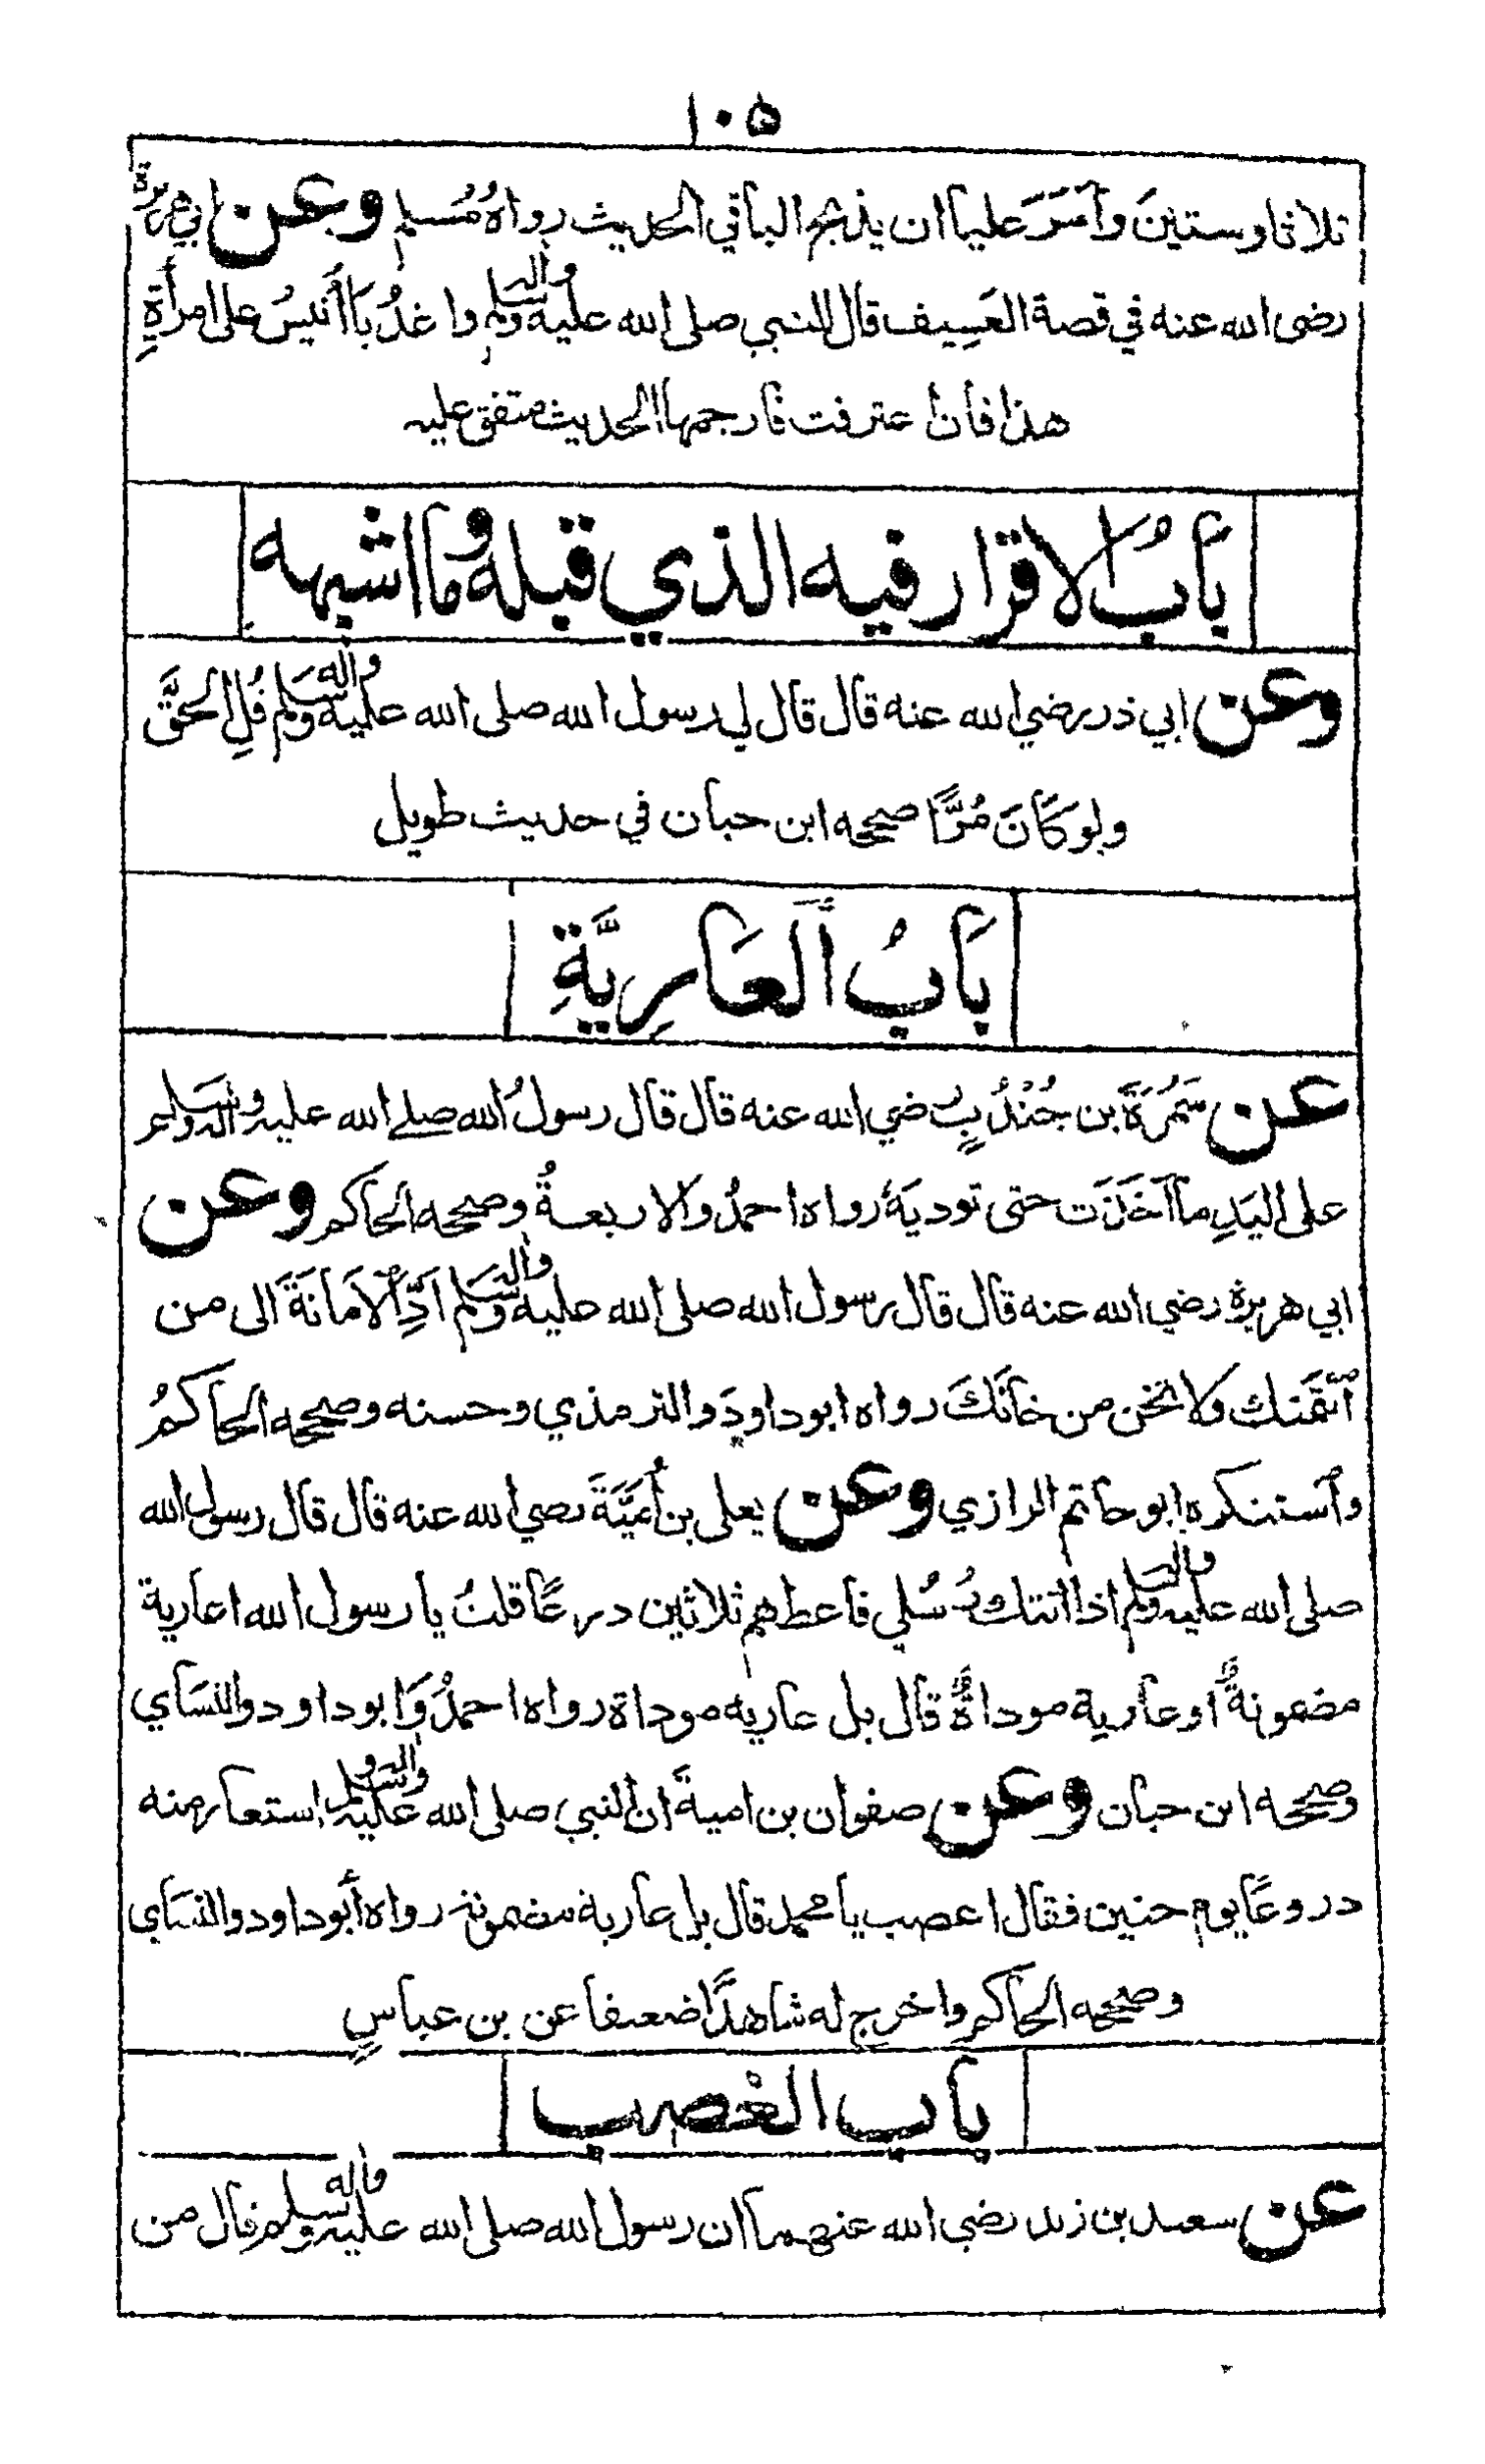 ١٠٥
ثلاثا وستين وأمَرَ عليا ان يذبح الباقي الحديث رواهُ مُسلم وعن ابي هريرة
رضى الله عنه في قصة العَسِيف قال النبي صلى الله عليه واله وسلم واغدُ يَا أُنَيسُ على امرأةِ
هذا فان اعترفت فارجمها الحديث متفق عليه
بَابُ الاقرار فيه الذي قبله وما اشبهه
وعن ابي ذر رضي الله عنه قال قال لي رسول الله صلى الله عليه واله وسلم قُلِ الحقَّ
ولو كَانَ مُرًّا صححه ابن حبان في حديث طويل
بَابُ العَارِيَّةِ
عن سَمُرَةَ بن جُنْدُبٍ رضي الله عنه قال قال رسولُ الله صلے الله عليه واله وسلم
على اليَدِ ما أخَذَت حتى توديَهُ رواه احمدُ والاربعةُ وصححه الحاكم وعن
ابي هريرة رضي الله عنه قال قال رسول الله صلى الله عليه واله وسلم اَدِّ الأمَانَةَ الى من
ائتَمَنك ولا تخن من خَانَكَ رواه ابو داودَ والترمذي وحسنه وصححه الحاكمُ
وأستنكره ابو حاتم الرازي وعن يعلى بن أُمَيَّةَ رضي الله عنه قال قال رسول الله
صلى الله عليه واله وسلم اذا اتتك رُسُلي فاعطهم ثلاثين درعًا قلتُ يا رسول الله اعارية
مضمونةٌ او عارية موداةٌ قال بل عاريه موداة رواه احمدُ وَابو داود والنسَاي
وصححه ابن حبان وعن صفوان بن اميةَ ان النبي صلى الله عليه واله وسلم استعار منه
دروعًا يوم حنين فقال اعصب يا محمد قال بل عارية مضمونة رواه أبو داود والنسَاي
وصححه الحاكم واخرج له شاهدًا ضعيفا عن بن عباسٍ
باب الغصب
عن سعيد بن زيد رضى الله عنهما ان رسول الله صلى الله عليه واله وسلم قال من